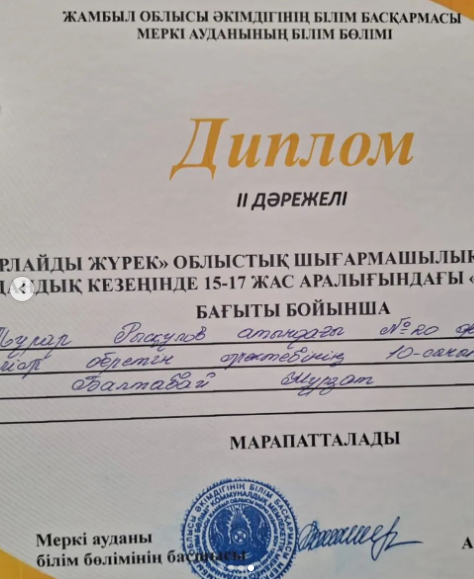 ЖАМБЫЛ ОБЛЫСЫ ӘКІМДІГІНІҢ БІЛІМ БАСҚАРМАСЫ
МЕРКІ АУДАНЫНЫҢ БІЛІМ БӨЛІМІ
Диплом
ІІ ДӘРЕЖЕЛІ
РЛАЙДЫ ЖҮРЕК» ОБЛЫСТЫҚ ШЫҒАРМАШЫЛЫҚ
ДАНДЫҚ КЕЗЕҢІНДЕ 15-17 ЖАС АРАЛЫҒЫНДАҒЫ «
БАҒЫТЫ БОЙЫНША
Тұрар Рысқұлов атындағы №20
мектебінің 10-сынып
Балтабай
МАРАПАТТАЛАДЫ
Меркі ауданы
білім бөлімінің басшысы